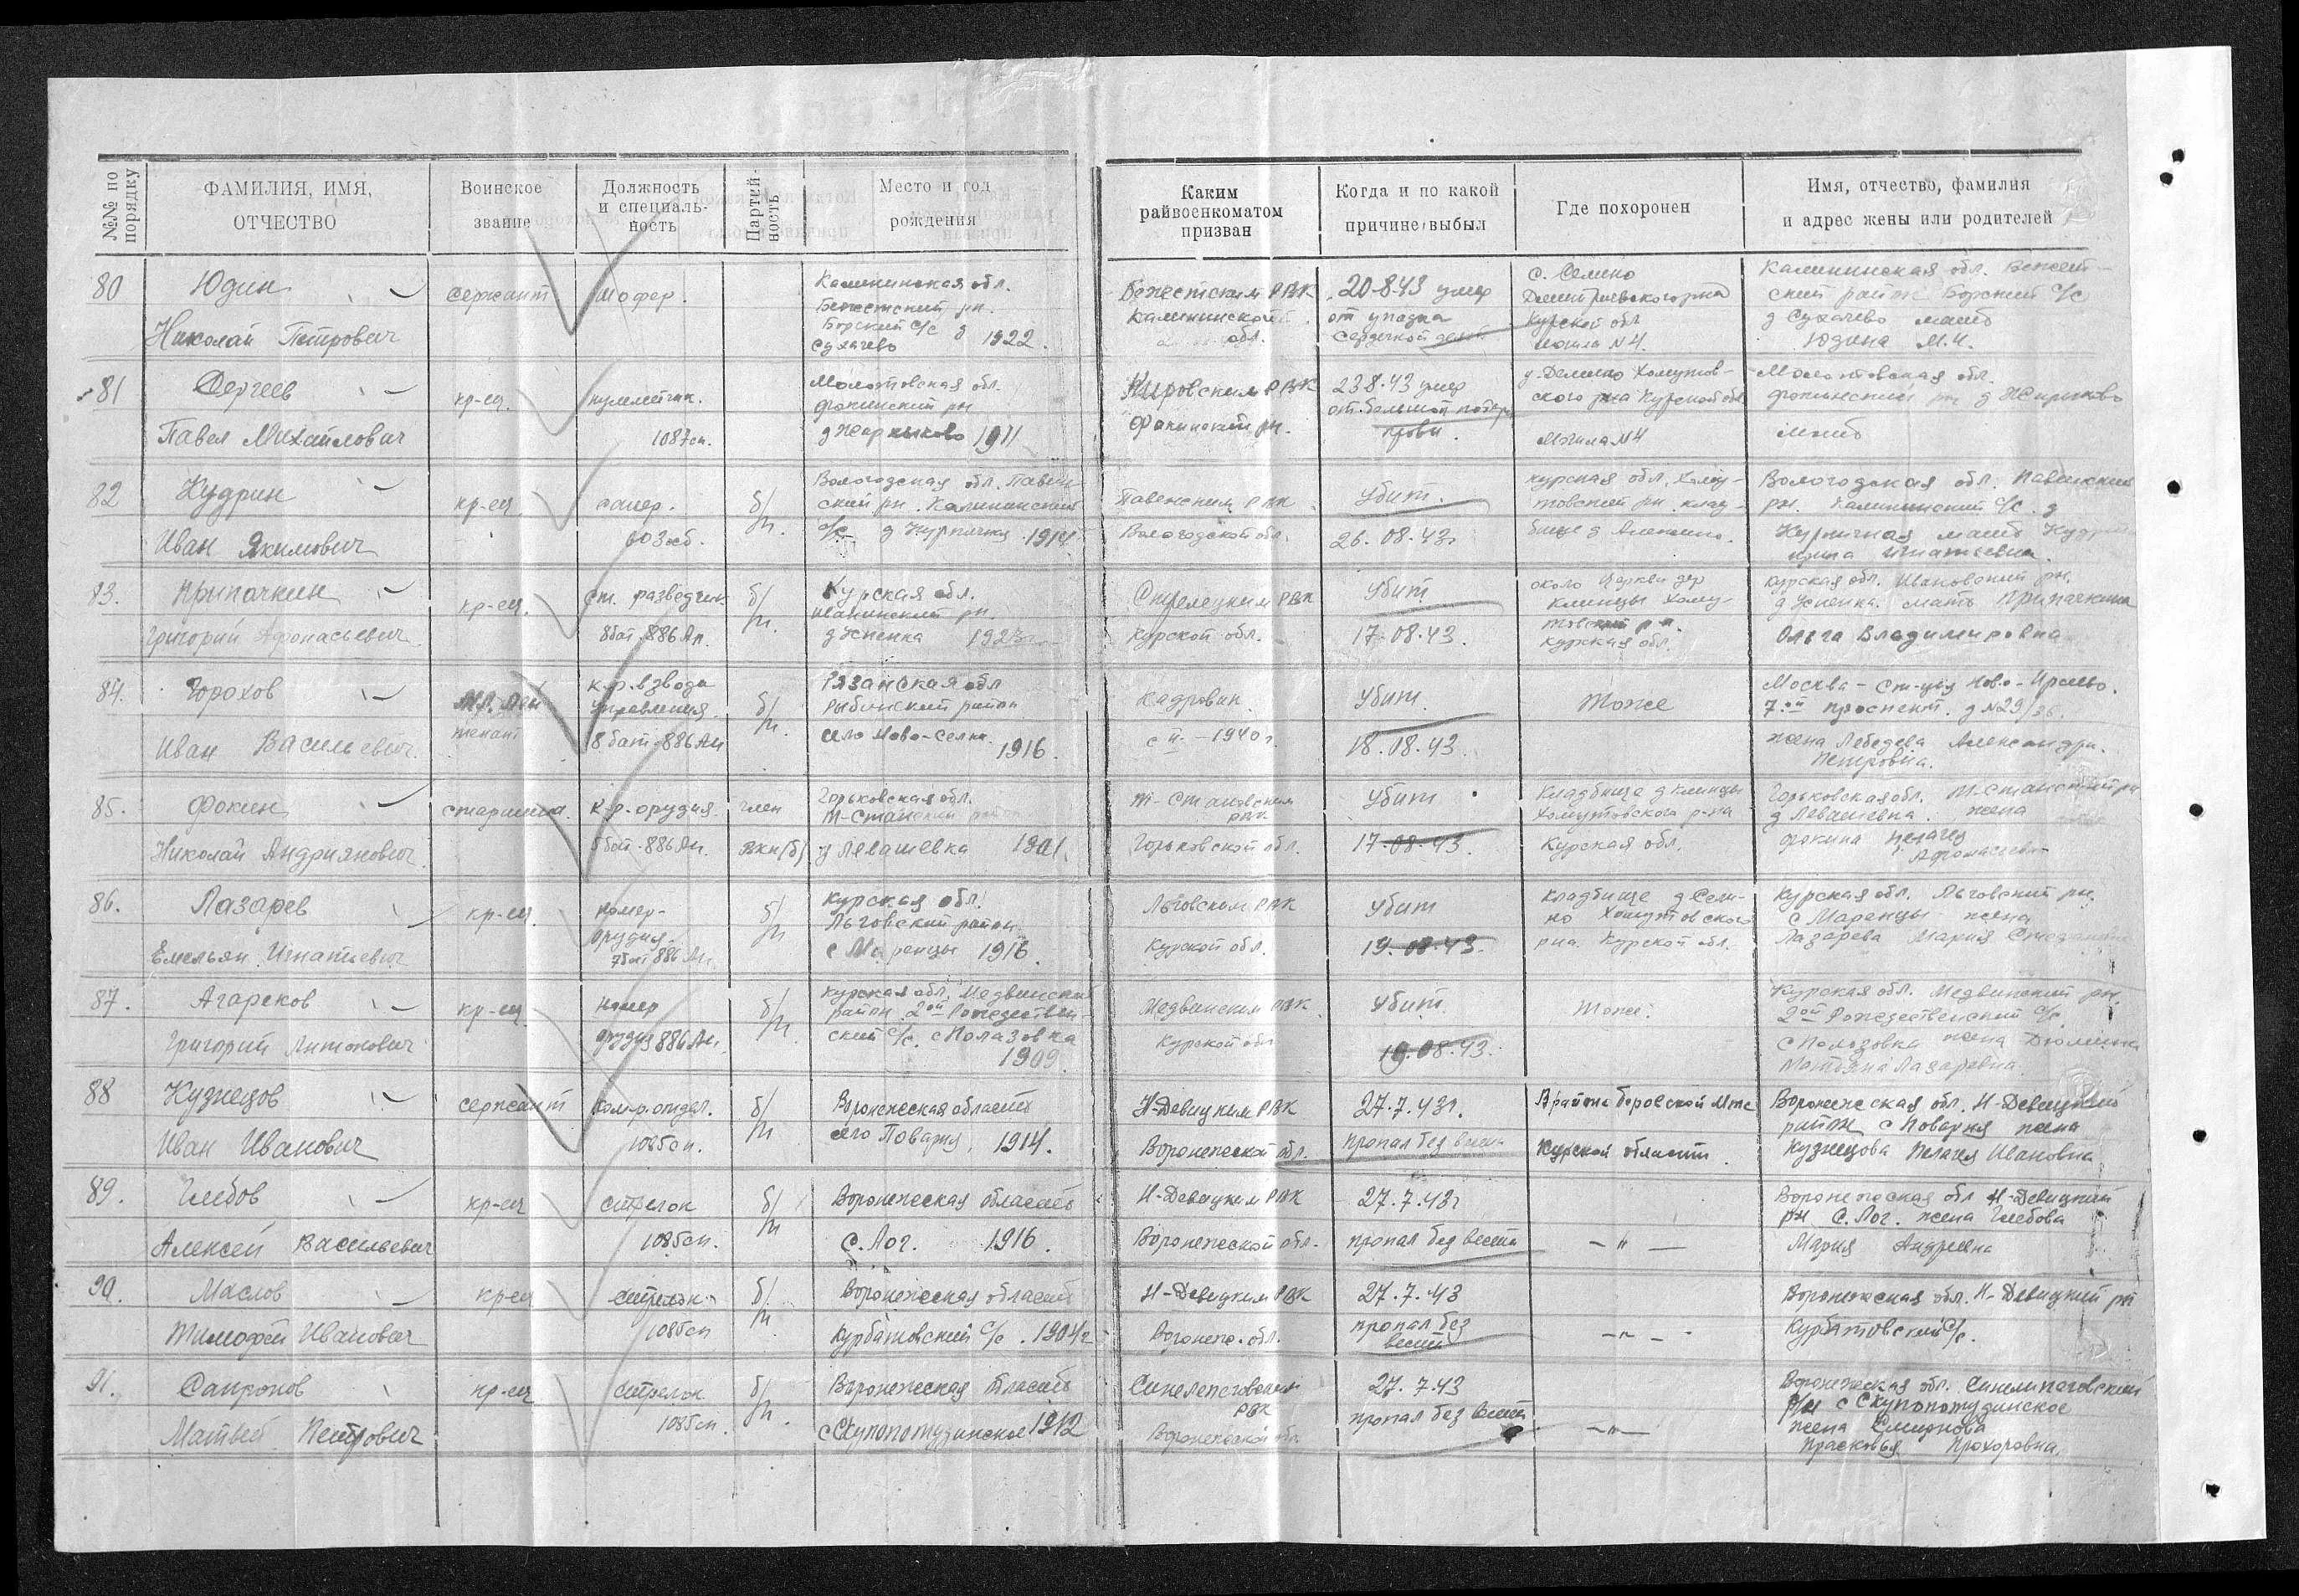 №№ по порядку
ФАМИЛИЯ, ИМЯ, ОТЧЕСТВО
Воинское звание
Должность и специальность
Партийность
Место и год рождения
Каким райвоенкоматом призван
Когда и по какой причине выбыл
Где похоронен
Имя, отчество, фамилия и адрес жены или родителей
80
Юдин
Николай Петрович
сержант
шофер.
Калининская обл.
Бежетский рн.
Борский с/с д
Сухачево 1922.
Бежетским РВК
Калининской обл.
20-8-43 умер
от упадка
сердечной
с. Селино
Дмитриевского рна
Курской обл
могила N4.
Калининская обл. Бежет-
ский район Борский с/с
д Сухачево мать
Юдина М.И.
81
Сергеев
Павел Михайлович
кр-ец.
пулеметчик.
1087сп.
Молотовская обл.
Фокинский рн
1911
Кировским РВК
Фокинский рн.
23.8.43 умер
от большой потери
крови.
Хомутов-
ского рна Курской обл
Могила N4
Молотовская обл.
Фокинский рн д
мать
82
Кудрин
Иван Якимович
кр-ец
сапер.
603 осб.
б/п.
Вологодская обл.
ский рн. Калининский
с/с д 1914
РВК
Вологодской обл.
Убит.
26.08.43г
Курская обл. Хому-
товский рн. клад-
бище д
Вологодская обл.
рн. Калининский с/с. д
мать
Игнатьевна.
83.
Припачкин
Григорий Афонасьевич
кр-ец.
ст. разведчик
8бат. 886 Ап.
б/п.
Курская обл.
рн.
д Успенка 1923г
Стрелецким РВК
Курской обл.
Убит
17-08-43.
около церкви дер
Клинцы Хому-
товский р-н.
Курская обл.
Курская обл. рн.
д Успенка. мать Припачкина
Ольга Владимировна
84.
Горохов
Иван Васильевич.
мл. лей
тенант
к-р. взвода
Управления.
8 бат. 886 Ап
б/п.
Рязанская обл
Рыбинский район
село Ново-Селки.
1916.
Кадровик.
с 1940г.
Убит.
18.08.43.
Тоже
Москва - Ст-ция Ново-
7ой проспект. д N29/36.
жена Лебедева Александра.
Петровна.
85.
Фокин
Николай Андриянович.
старшина.
к-р. орудия.
886 Ап.
член
ВКП(б)
Горьковская обл.
Т-Станский район
д Левашевка 1901.
Т-Становским
РВК
Горьковской обл.
Убит
17-08-43.
Кладбище д Клинцы
Хомутовского р-на
Курская обл.
Горьковская обл. Т-Станский рн
д Левашевка. жена
Фокина Пелагея
Афонасьевна
86.
Лазарев
Емельян Игнатьевич
кр-ец.
номер-
орудия.
7бат 886 Ап.
б/п
Курская обл.
Льговский район
с Марицы 1916.
Льговским РВК
Курской обл.
Убит
19-08-43.
Кладбище д Сели-
но Хомутовского
рна. Курской обл.
Курская обл. Льговский рн.
с Марицы жена
Лазарева Мария
87.
Агарков
Григорий Антонович
кр-ец
номер
орудия 886 Ап.
б/п.
Курская обл. Медвинский
район 2ой Рождествен-
ский с/с. с Полазовка
1909.
Медвинским РВК
Курской обл
Убит.
19.08.43.
Тоже.
Курская обл. Медвинский рн.
2ой Рождественский с/с.
с Полозовка жена
Лазаревна.
88
Кузнецов
Иван Иванович
сержант
ком-р. отдел.
1085сп.
б/п
Воронежская область
село Поварня, 1914.
Н-Девицким РВК
Воронежской обл.
27.7.43г.
пропал без вести
В районе
Курской области.
Воронежская обл. Н-Девицкий
район с Поварня жена
Кузнецова Пелагея Ивановна
89.
Глебов
Алексей Васильевич
кр-ец
стрелок
1085сп.
б/п
Воронежская область
с. Лог. 1916.
Н-Девицким РВК
Воронежской обл.
27.7.43г
пропал без вести
—"—
Воронежская обл Н-Девицкий
рн с. Лог. жена Глебова
Мария Андреевна
90.
Маслов
Тимофей Иванович
кр-ец
стрелок
1085сп
б/п
Воронежская область
Курбатовский с/с. 1904г
Н-Девицким РВК
Воронеж. обл.
27.7.43
пропал без
вести
—"—
Воронежская обл. Н-Девицкий рн
Курбатовский с/с.
91.
Сапронов
Матвей Петрович
кр-ец
стрелок
1085сп.
б/п.
Воронежская область
1912
РВК
Воронежской обл
27.7.43
пропал без вести
—"—
Воронежская обл.
р/н с
жена Смирнова
Прасковья Прохоровна.